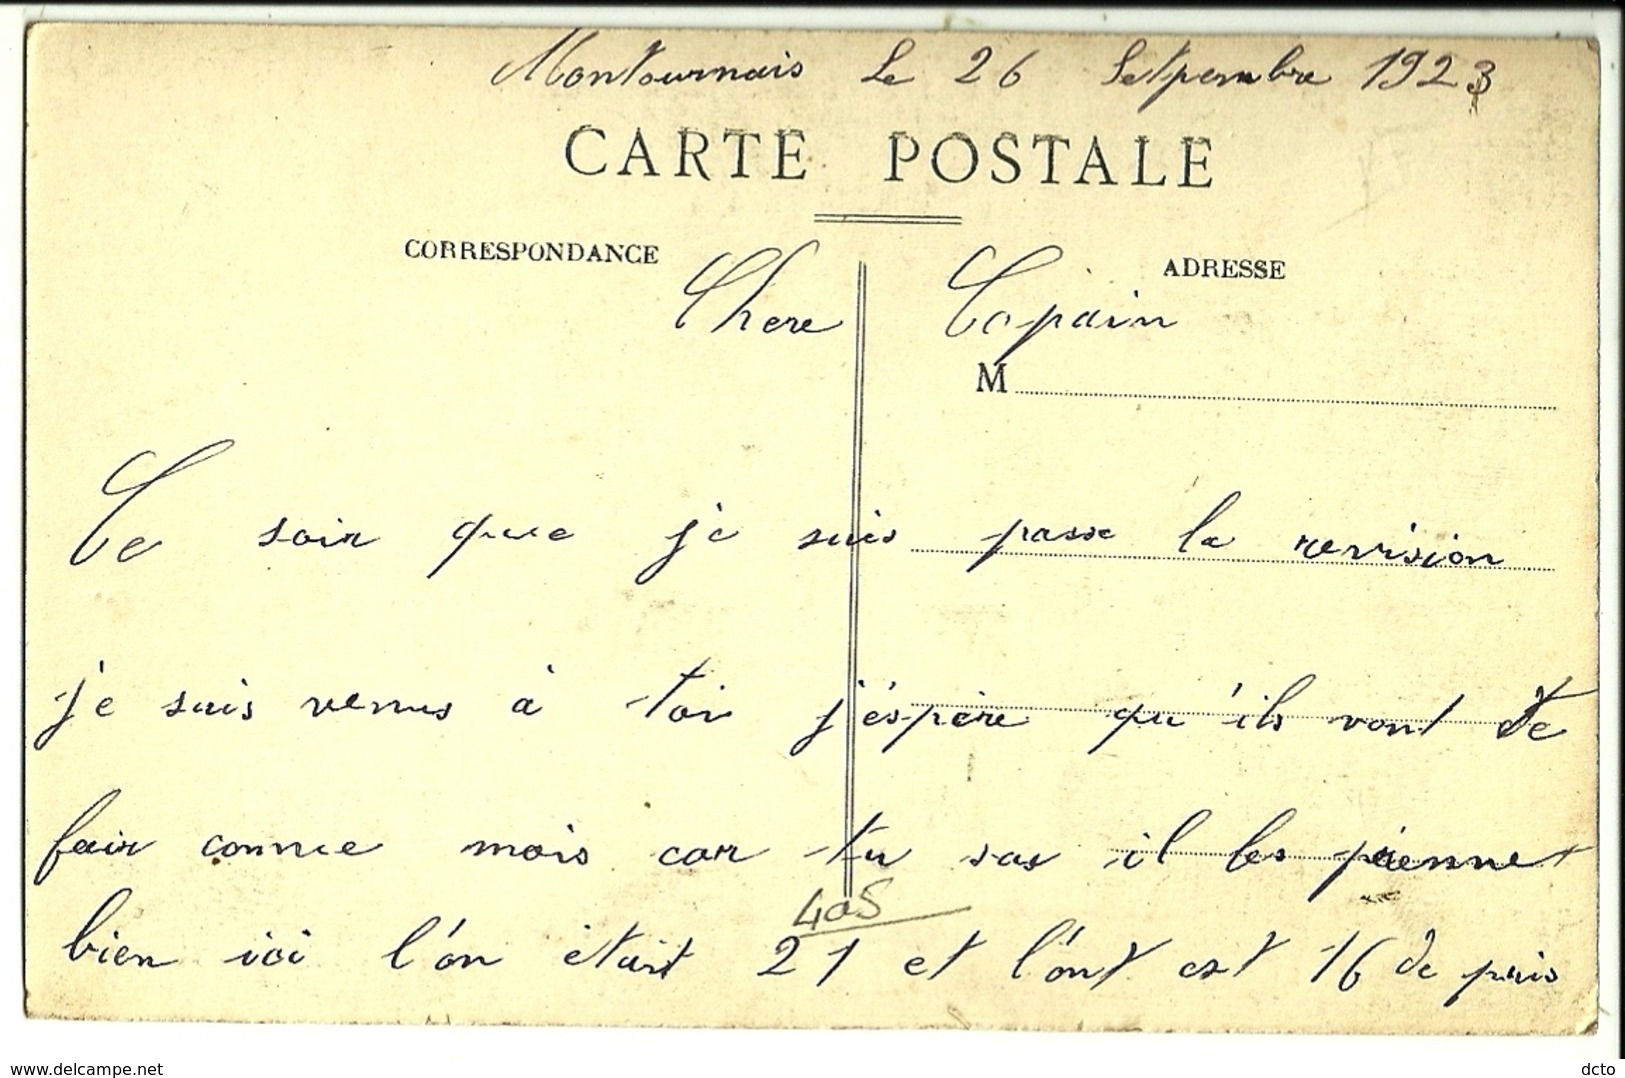 Montournais Le 26 Setpembre 1923
CARTE POSTALE
CORRESPONDANCE
ADRESSE
Chere Copain
M
Ce soir que je suis passe la revision
je suis venus à toi j'éspère qu'ils vont te
fair comme mois car tu sas il les prennet
bien ici l'on était 21 et l'ont est 16 de pris
405
www.delcampe.net
dcto